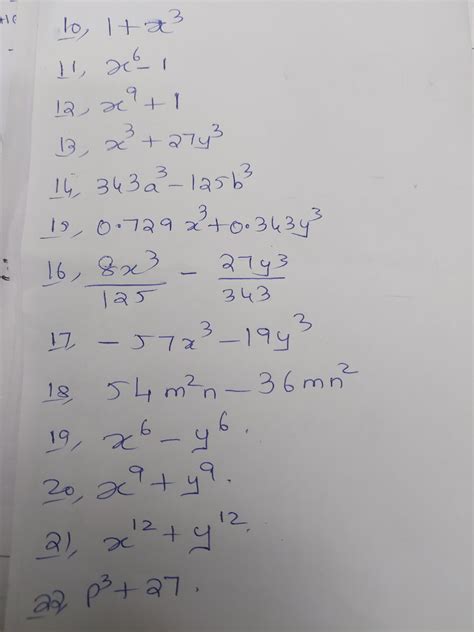 10, 1 + x³
11, x⁶ - 1
12, x⁹ + 1
13, x³ + 27y³
14, 343a³ - 125b³
15, 0.729 x³ + 0.343y³
16, 8x³/125 - 27y³/343
17, - 57x³ - 19y³
18, 54m²n - 36mn²
19, x⁶ - y⁶.
20, x⁹ + y⁹.
21, x¹² + y¹².
22, p³ + 27.